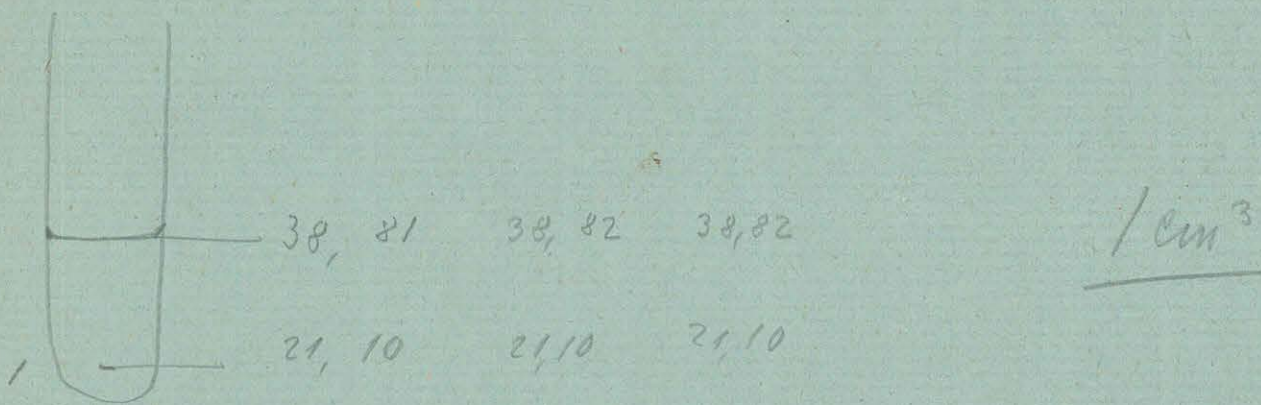 38, 81 38, 82 38,82
1 cm³
21, 10 21,10 21,10
1